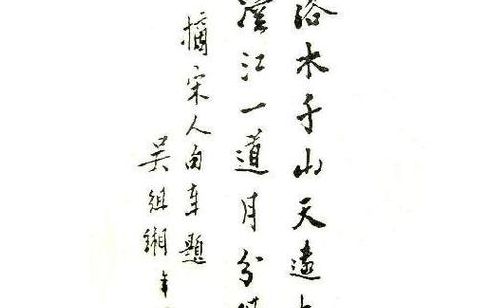 落木千山天遠
澄江一道月分
摘宋人句奉題
吴組緗